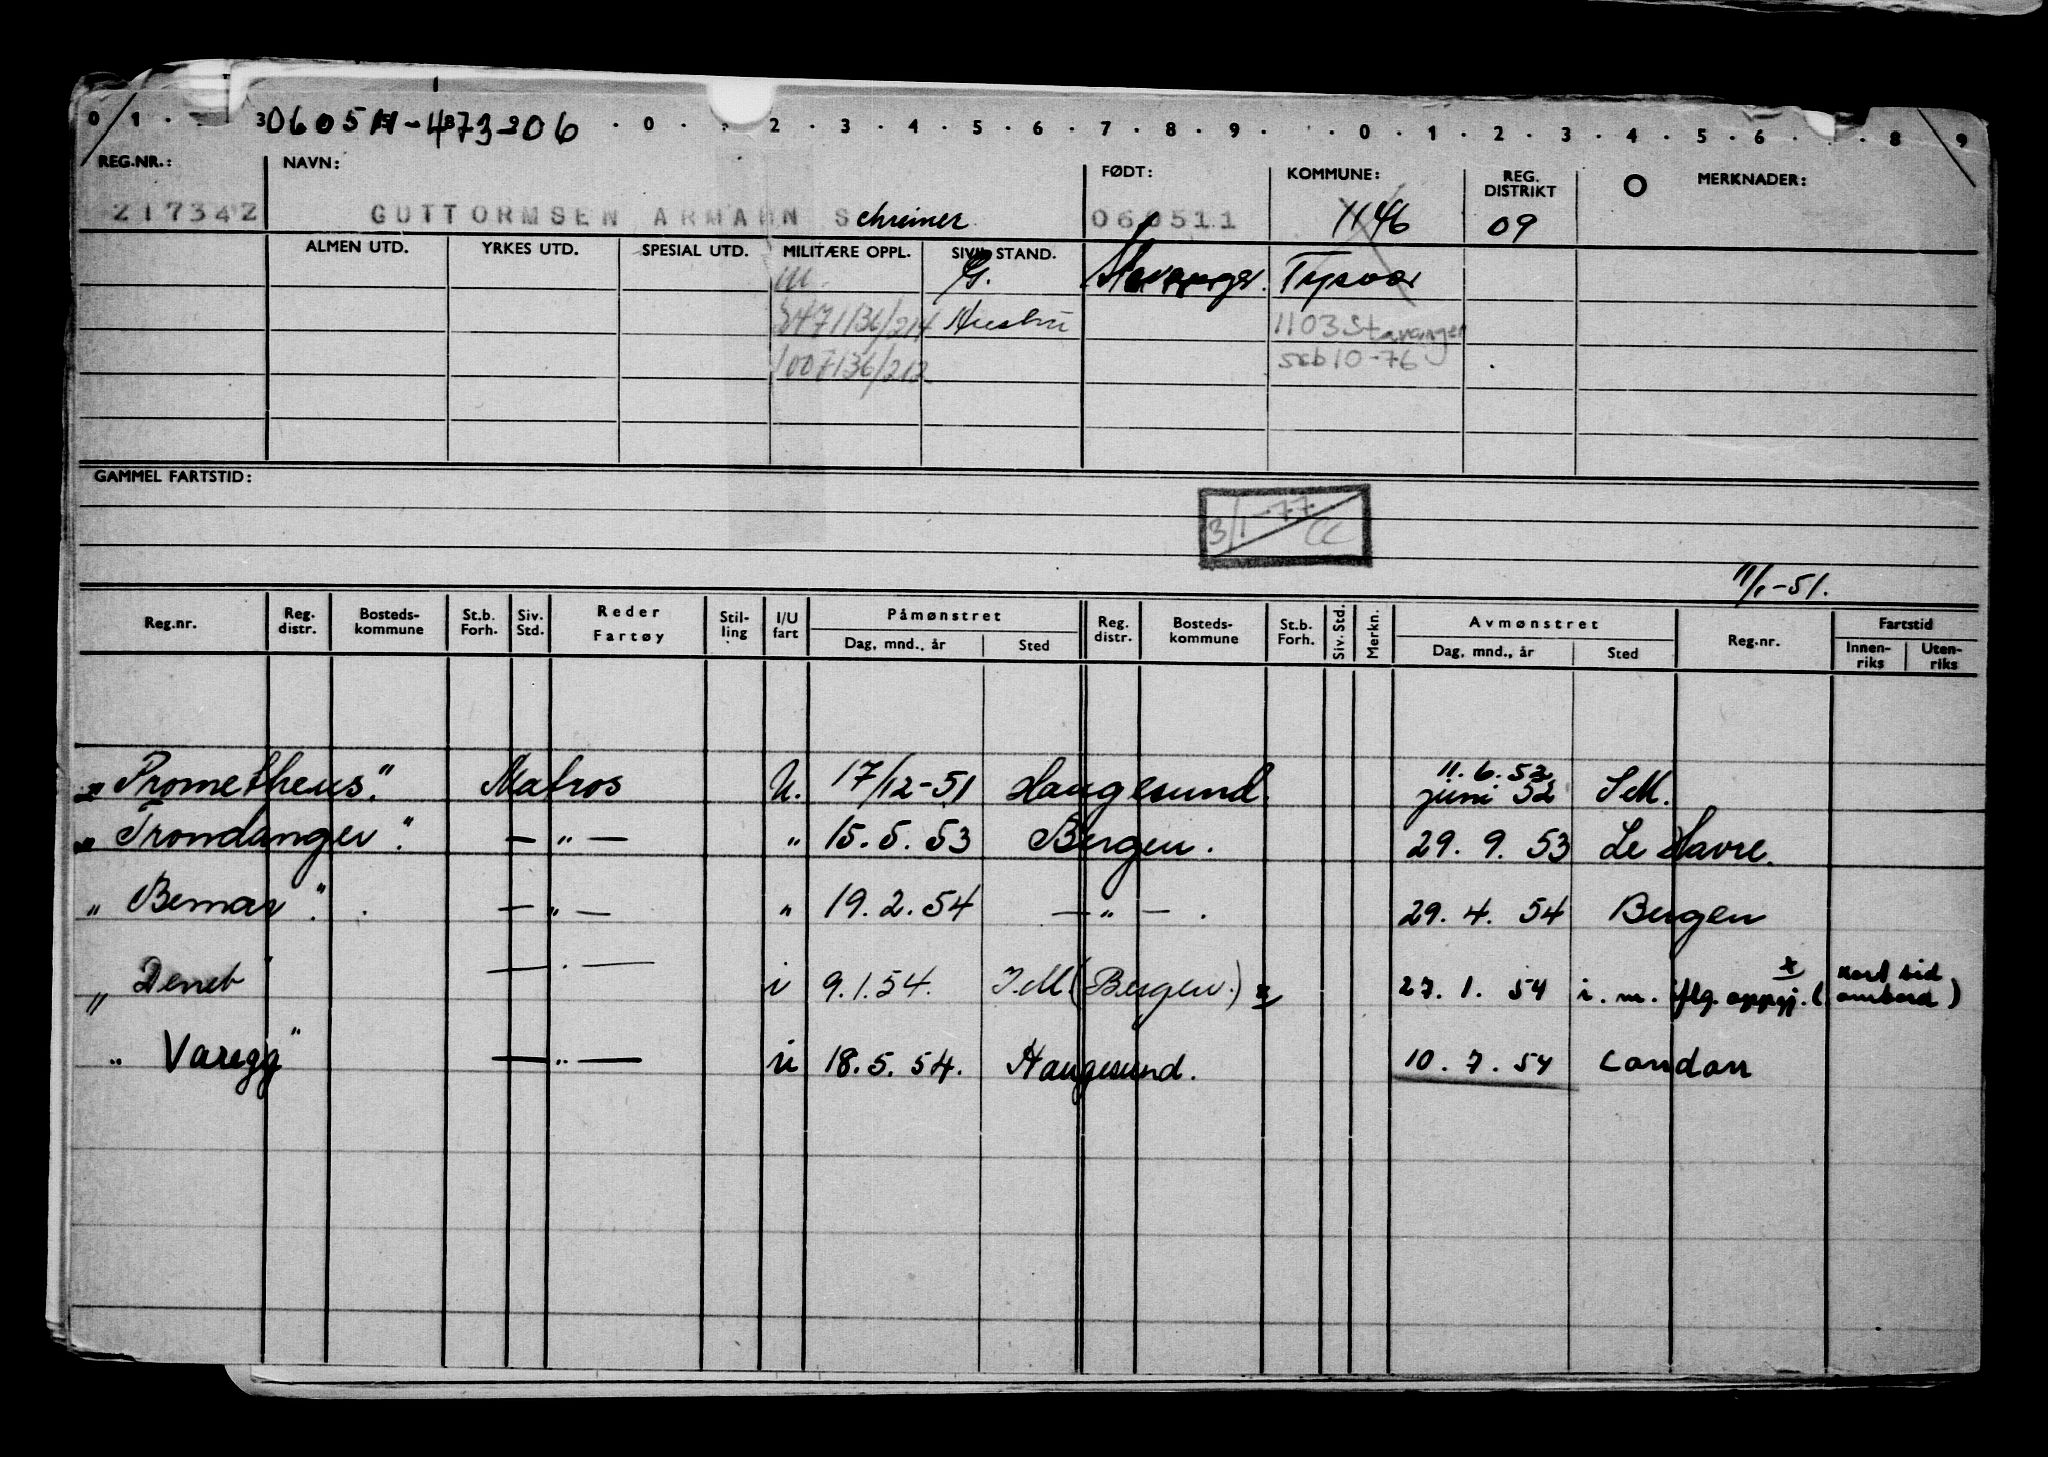 0 1 3 060511-473206 0 2 3 4 5 6 7 8 9 0 1 2 3 4 5 6 8 9
REG.NR.: NAVN: FØDT: KOMMUNE: REG. DISTRIKT MERKNADER:
217342 GUTTORMSEN ARMANN Schreiner 060511 1146 09
ALMEN UTD. YRKES UTD. SPESIAL UTD. MILITÆRE OPPL. SIVIL STAND.
G. Stavanger. Tysvær
Hustru 1103 Stavanger
1007136/212 skb 10-76
GAMMEL FARTSTID:
3/1-77
11/1-51.
Reg.nr. Reg. distr. Bosteds-kommune St.b. Forh. Siv. Std. Reder Fartøy Stil-ling I/U fart Påmønstret Reg. distr. Bosteds-kommune St.b. Forh. Siv. Std. Merkn. Avmønstret Reg.nr. Fartstid
Dag, mnd., år Sted Dag, mnd., år Sted Innen-riks Uten-riks
11. 6. 52
"Prometheus". Matros U. 17/12-51 Haugesund. juni 52 I.M.
"Trondanger". — " — " 15. 5. 53 Bergen. 29. 9. 53 Le Havre.
"Bemar". — " — " 19. 2. 54 — " — . 29. 4. 54 Bergen
"Deneb" — " — i 9.1.54. I.M (Bergen.) x 27. 1. 54 i. m. iflg. oppgj. x (kort tid ombord)
"Varegg" — " — u 18. 5. 54. Haugesund. 10. 7. 54 London